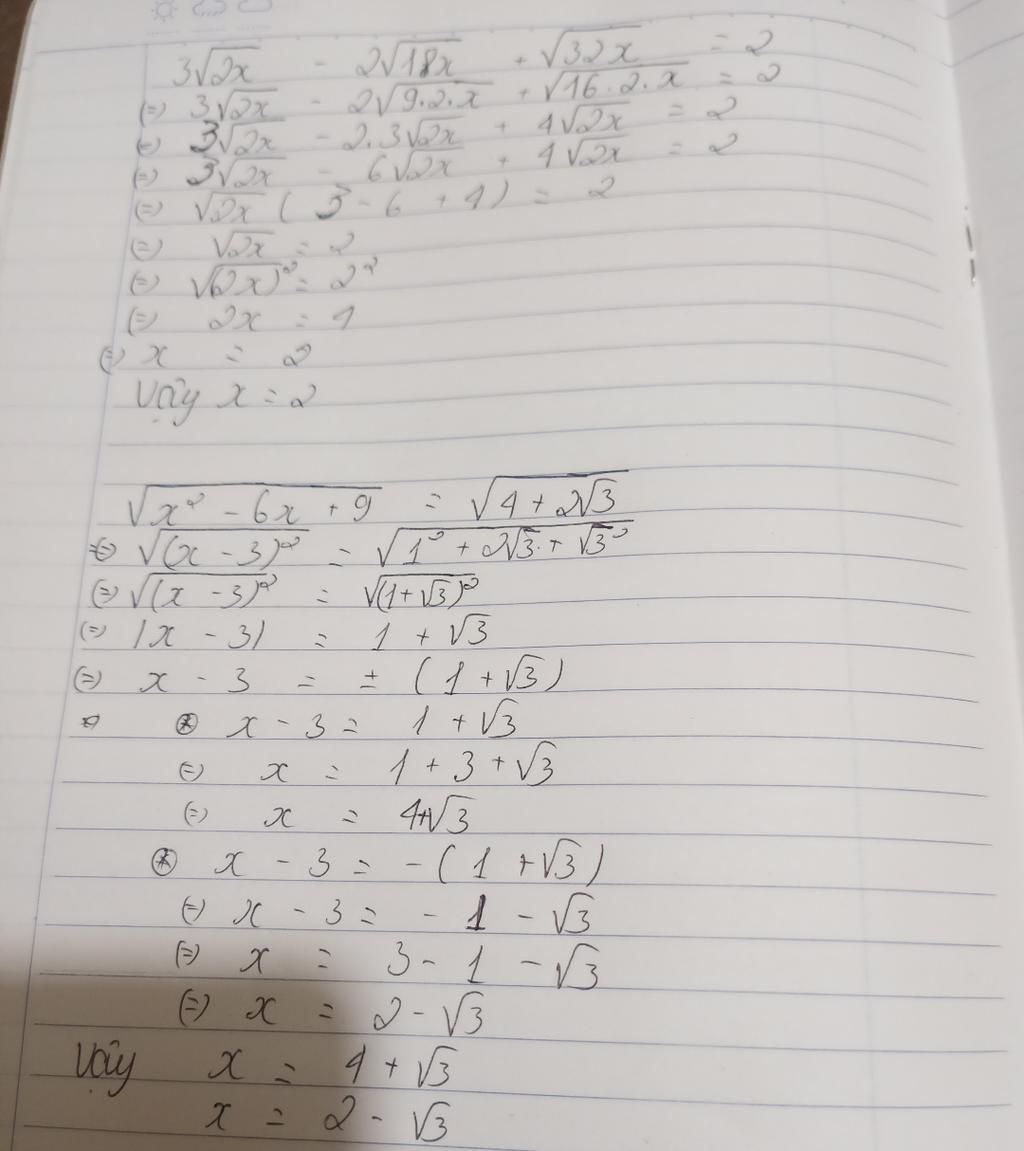 3√2x - 2√18x + √32x = 2
(=) 3√2x - 2√9.2.x + √16.2.x = 2
(=) 3√2x - 2.3√2x + 4√2x = 2
(=) 3√2x - 6√2x + 4√2x = 2
(=) √2x ( 3 - 6 + 4 ) = 2
(=) √2x = 2
(=) √(2x)² = 2²
(=) 2x = 4
(=) x = 2
Vậy x = 2
√x² - 6x + 9 = √4 + 2√3
(=) √(x - 3)² = √1² + 2√3 + √3²
(=) √(x - 3)² = √(1+√3)²
(=) |x - 3| = 1 + √3
(=) x - 3 = ± (1 + √3)
⊛ x - 3 = 1 + √3
(=) x = 1 + 3 + √3
(=) x = 4+√3
⊛ x - 3 = - (1 + √3)
(=) x - 3 = - 1 - √3
(=) x = 3 - 1 - √3
(=) x = 2 - √3
Vậy x = 4 + √3
x = 2 - √3